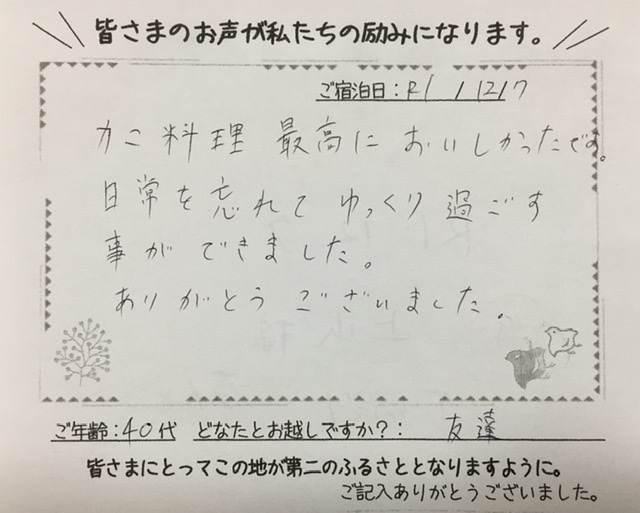 皆さまのお声が私たちの励みになります。
ご宿泊日:R1/12/7
カニ料理 最高に おいしかったです。
日常を忘れて ゆっくり過ごす
事ができました。
ありがとうございました。
ご年齢:40代 どなたとお越しですか?: 友達
皆さまにとってこの地が第二のふるさととなりますように。
ご記入ありがとうございました。